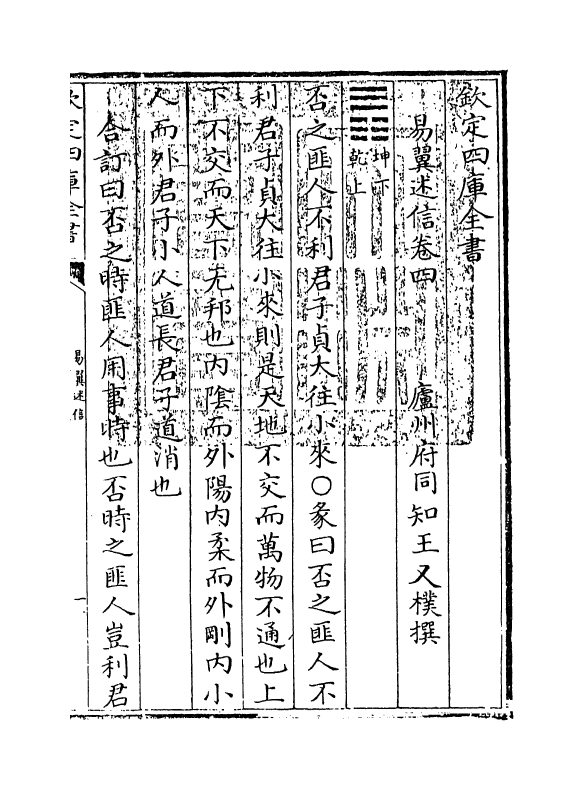 欽定四庫全書
易翼述信卷四　　廬州府同知王又樸撰
䷋坤下
乾上
否之匪人不利君子貞大往小來○彖曰否之匪人不
利君子貞大往小來則是天地不交而萬物不通也上
下不交而天下无邦也内隂而外陽内柔而外剛内小
人而外君子小人道長君子道消也
合訂曰否之時匪人用事時也否時之匪人豈利君
欽定四庫全書
易翼述信
一